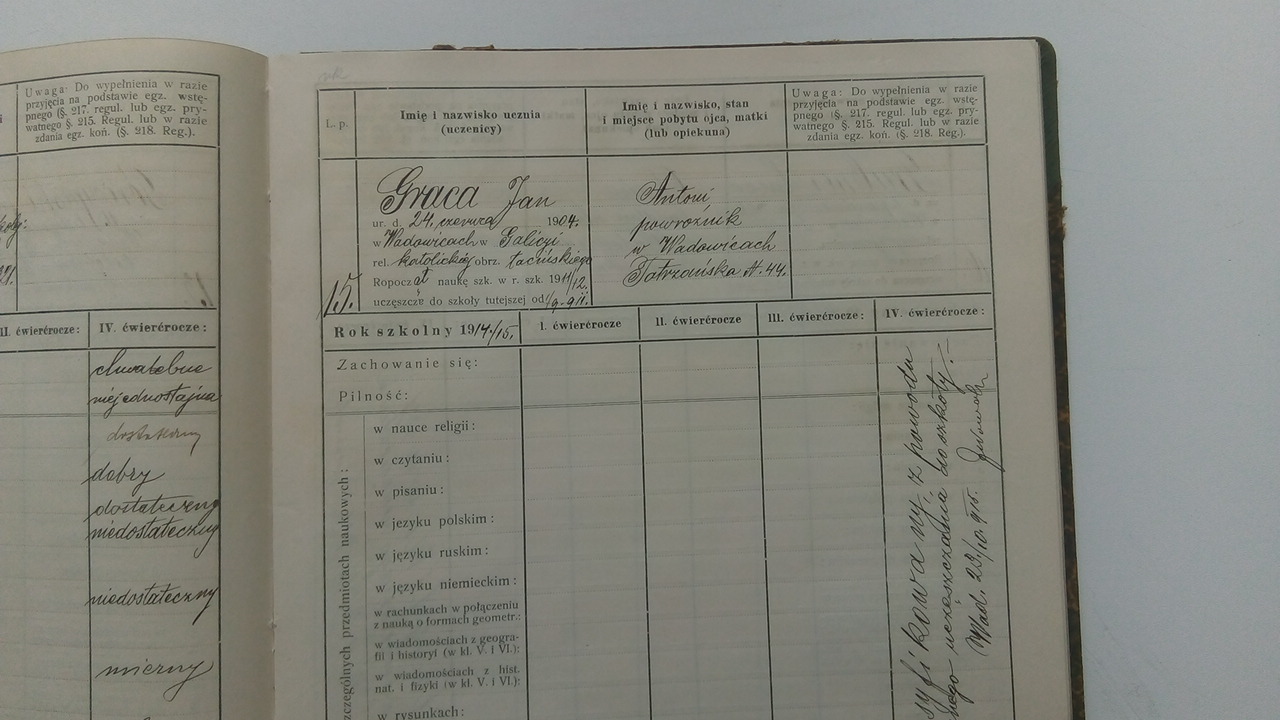 Uwaga: Do wypełnienia w razie
przyjęcia na podstawie egz. wstę-
pnego (§. 217. regul. lub egz. pry-
watnego §. 215. Regul. lub w razie
zdania egz. koń. (§. 218. Reg.).
II. ćwierćrocze:
IV. ćwierćrocze:
chwalebne
niejednostajna
dostateczny
dobry
dostateczny
niedostateczny
niedostateczny
mierny
L. p.
Imię i nazwisko ucznia
(uczenicy)
Imię i nazwisko, stan
i miejsce pobytu ojca, matki
(lub opiekuna)
Uwaga: Do wypełnienia w razie
przyjęcia na podstawie egz. wstę-
pnego (§. 217. regul. lub egz. pry-
watnego §. 215. Regul. lub w razie
zdania egz. koń. (§. 218. Reg.).
15.
Graca Jan
ur. d. 24. czerwca 1904.
w Wadowicach w Galiczi
rel. katolickiej obrz. łacińskiego
Ropoczął naukę szk. w r. szk. 1911/12.
uczęszcze do szkoły tutejszej od 1/9. 911.
Antoni
powroźnik
w Wadowicach
Tatrzańska 44.
Rok szkolny 1914/15.
I. ćwierćrocze
II. ćwierćrocze
III. ćwierćrocze:
IV. ćwierćrocze:
Zachowanie się:
Pilność:
czególnych przedmiotach naukowych:
w nauce religii:
w czytaniu:
w pisaniu:
w jezyku polskim:
w języku ruskim:
w języku niemieckim:
w rachunkach w połączeniu
z nauką o formach geometr.:
w wiadomościach z geogra-
fii i historyi (w kl. V. i VI.):
w wiadomościach z hist.
nat. i fizyki (w kl. V. i VI.):
w rysunkach:
syfikowany z powodu
nego uczęszczania do szkoły.
Wad. 23/10. 915.